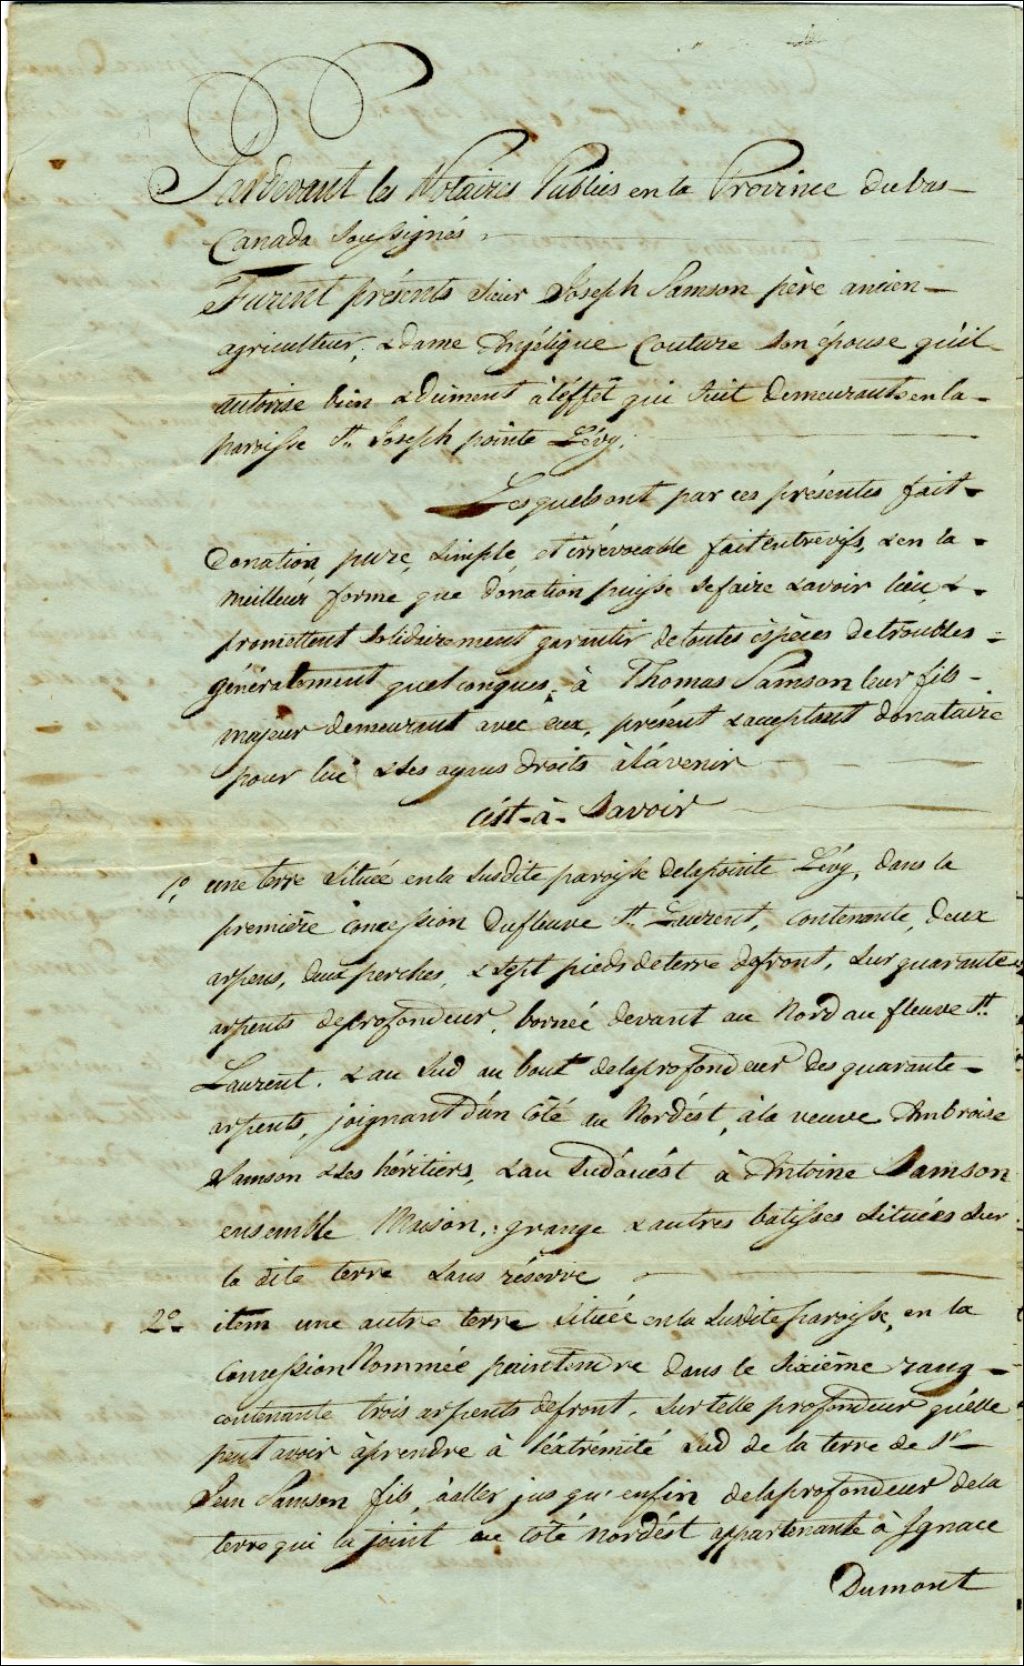 Pardevant les Notaires Publics en la Province du bas-
Canada Soussignés
Furent présents Sieur Joseph Samson père ancien-
agriculteur, & dame Angélique Couture Son épouse qu'il
autorise bien & dûment à l'éffet qui Suit demeurants en la-
paroisse St. Joseph pointe Lévy,
Lesquels ont par ces présentes fait-
donation, pure, Simple, et irrévocable fait entrevifs, & en la-
meilleur forme que donation puisse se faire & avoir lieu, &-
promettent Solidairement garantir de toutes éspèces de troubles=
généralement quelconques, à Thomas Samson leur fils-
majeur demeurant avec eux, présent & acceptant donataire
pour lui & Ses ayans droits à l'avenir
C'est-à-Savoir
1o. une terre Située en la Susdite paroisse de la pointe Lévy, dans la
première concession du fleuve St. Laurent, contenante, deux
arpens, deux perches, & Sept pieds de terre de front, Sur quarante
arpents de profondeur, bornée devant au Nord au fleuve St.
Laurent. & au Sud au bout de la profondeur des quarante-
arpents, joignant d'un Côté au Nordést, à la veuve Ambroise
Samson & Ses héritiers, & au Sudouést à Antoine Samson
ensemble Maison, grange & autres batisses Situées Sur
la dite terre Sans réserve
2o- item une autre terre Située en la Susdite paroisse, en la
Concession Nommée paintendre dans le Sixième rang-
contenante trois arpents de front. Sur telle profondeur qu'elle
peut avoir à prendre à l'éxtrémité Sud de la terre de Sr-
Jean Samson fils, à aller jus qu'enfin de la profondeur de la
terre qui la joint au Coté Nordést appartenante à Ignace
Dumont